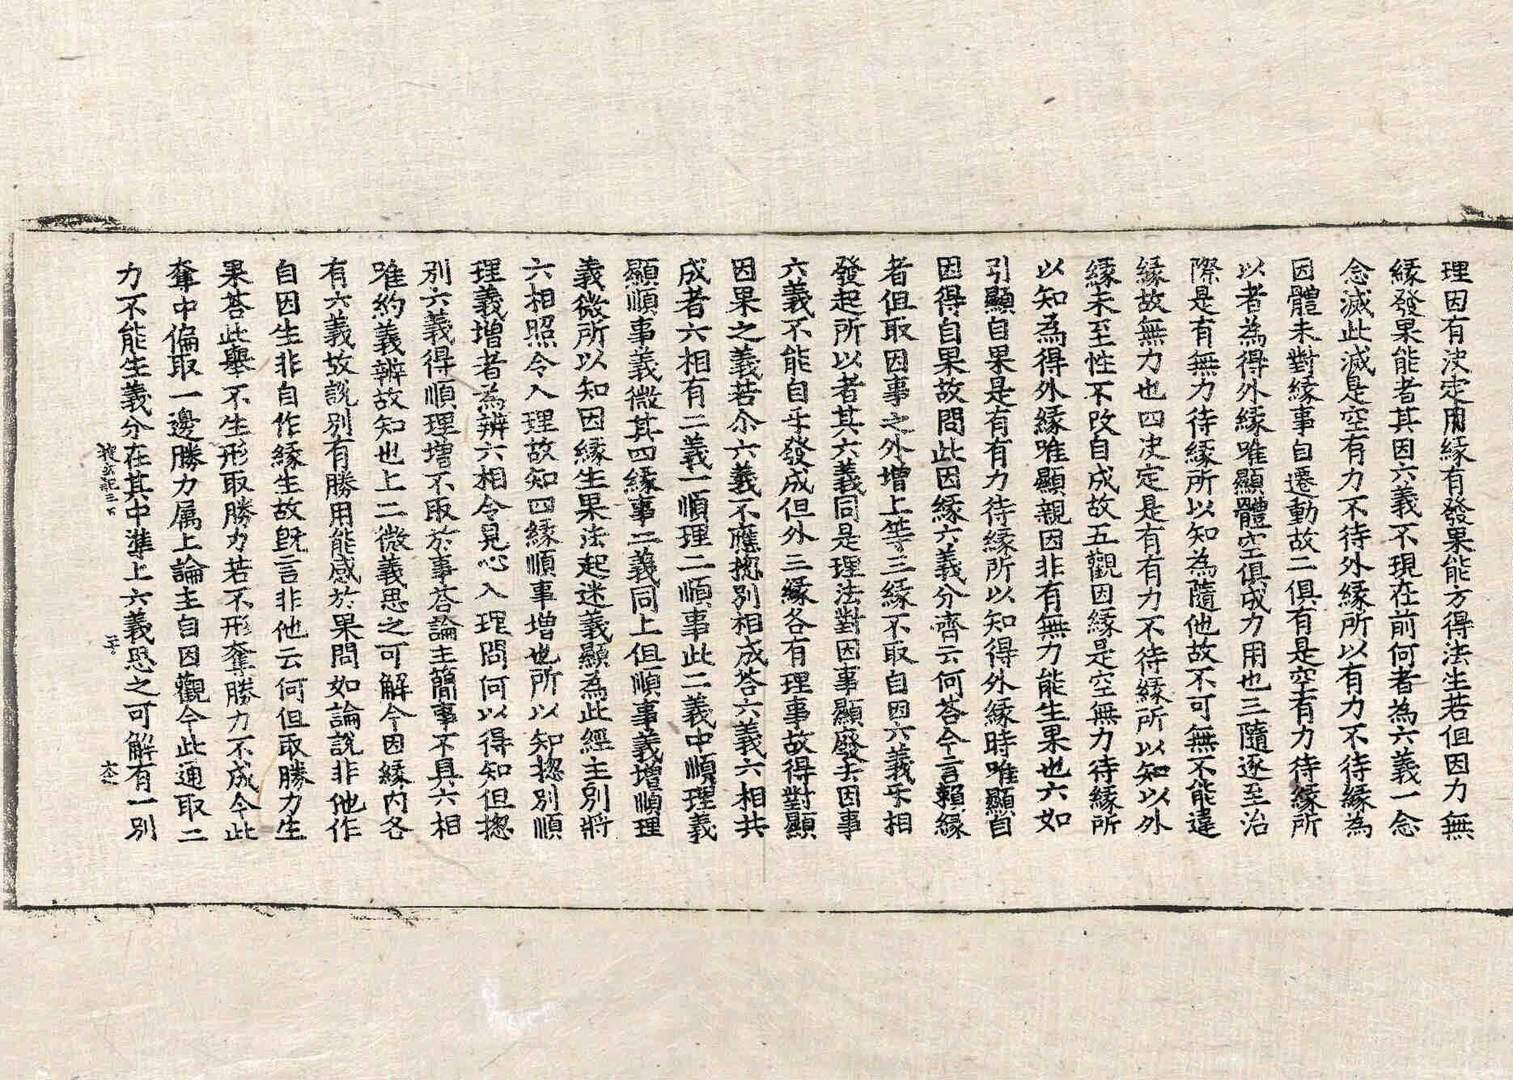 理因有決定用緣有發果能方得法生若但因力無
緣發果能者其因六義不現在前何者為六義一念
念滅此滅是空有力不待外緣所以有力不待緣為
因體未對緣事自遷動故二俱有是空有力待緣所
以者為得外緣唯顯體空俱成力用也三隨逐至治
際是有無力待緣所以知為隨他故不可無不能違
緣故無力也四决定是有有力不待緣所以知以外
緣未至性不改自成故五觀因緣是空無力待緣所
以知為得外緣唯顯親因非有無力能生果也六如
引顯自果是有有力待緣所以知得外緣時唯顯自
因得自果故問此因緣六義分齊云何荅今言賴緣
者但取因事之外增上等三緣不取自因六義乎相
發起所以者其六義同是理法對因事顯廢去因事
六義不能自乎發成但外三緣各有理事故得對顯
因果之義若尒六義不應揔別相成荅六義六相共
成者六相有二義一順理二順事此二義中順理義
顯順事義微其四緣事二義同上但順事義增順理
義微所以知因緣生果法起迷義顯為此經主別將
六相照令入理故知四緣順事增也所以知揔別順
理義增者為辨六相令見心入理問何以得知但揔
別六義得順理增不取於事荅論主簡事不具六相
唯約義辨故知也上二微義思之可解今因緣內各
有六義故說別有勝用能感於果問如論說非他作
自因生非自作緣生故旣言非他云何但取勝力生
果荅此舉不生形取勝力若不形奪勝力不成今此
奪中偏取一邊勝力属上論主自因觀今此通取二
力不能生義分在其中準上六義恐之可解有一別
搜玄記三下